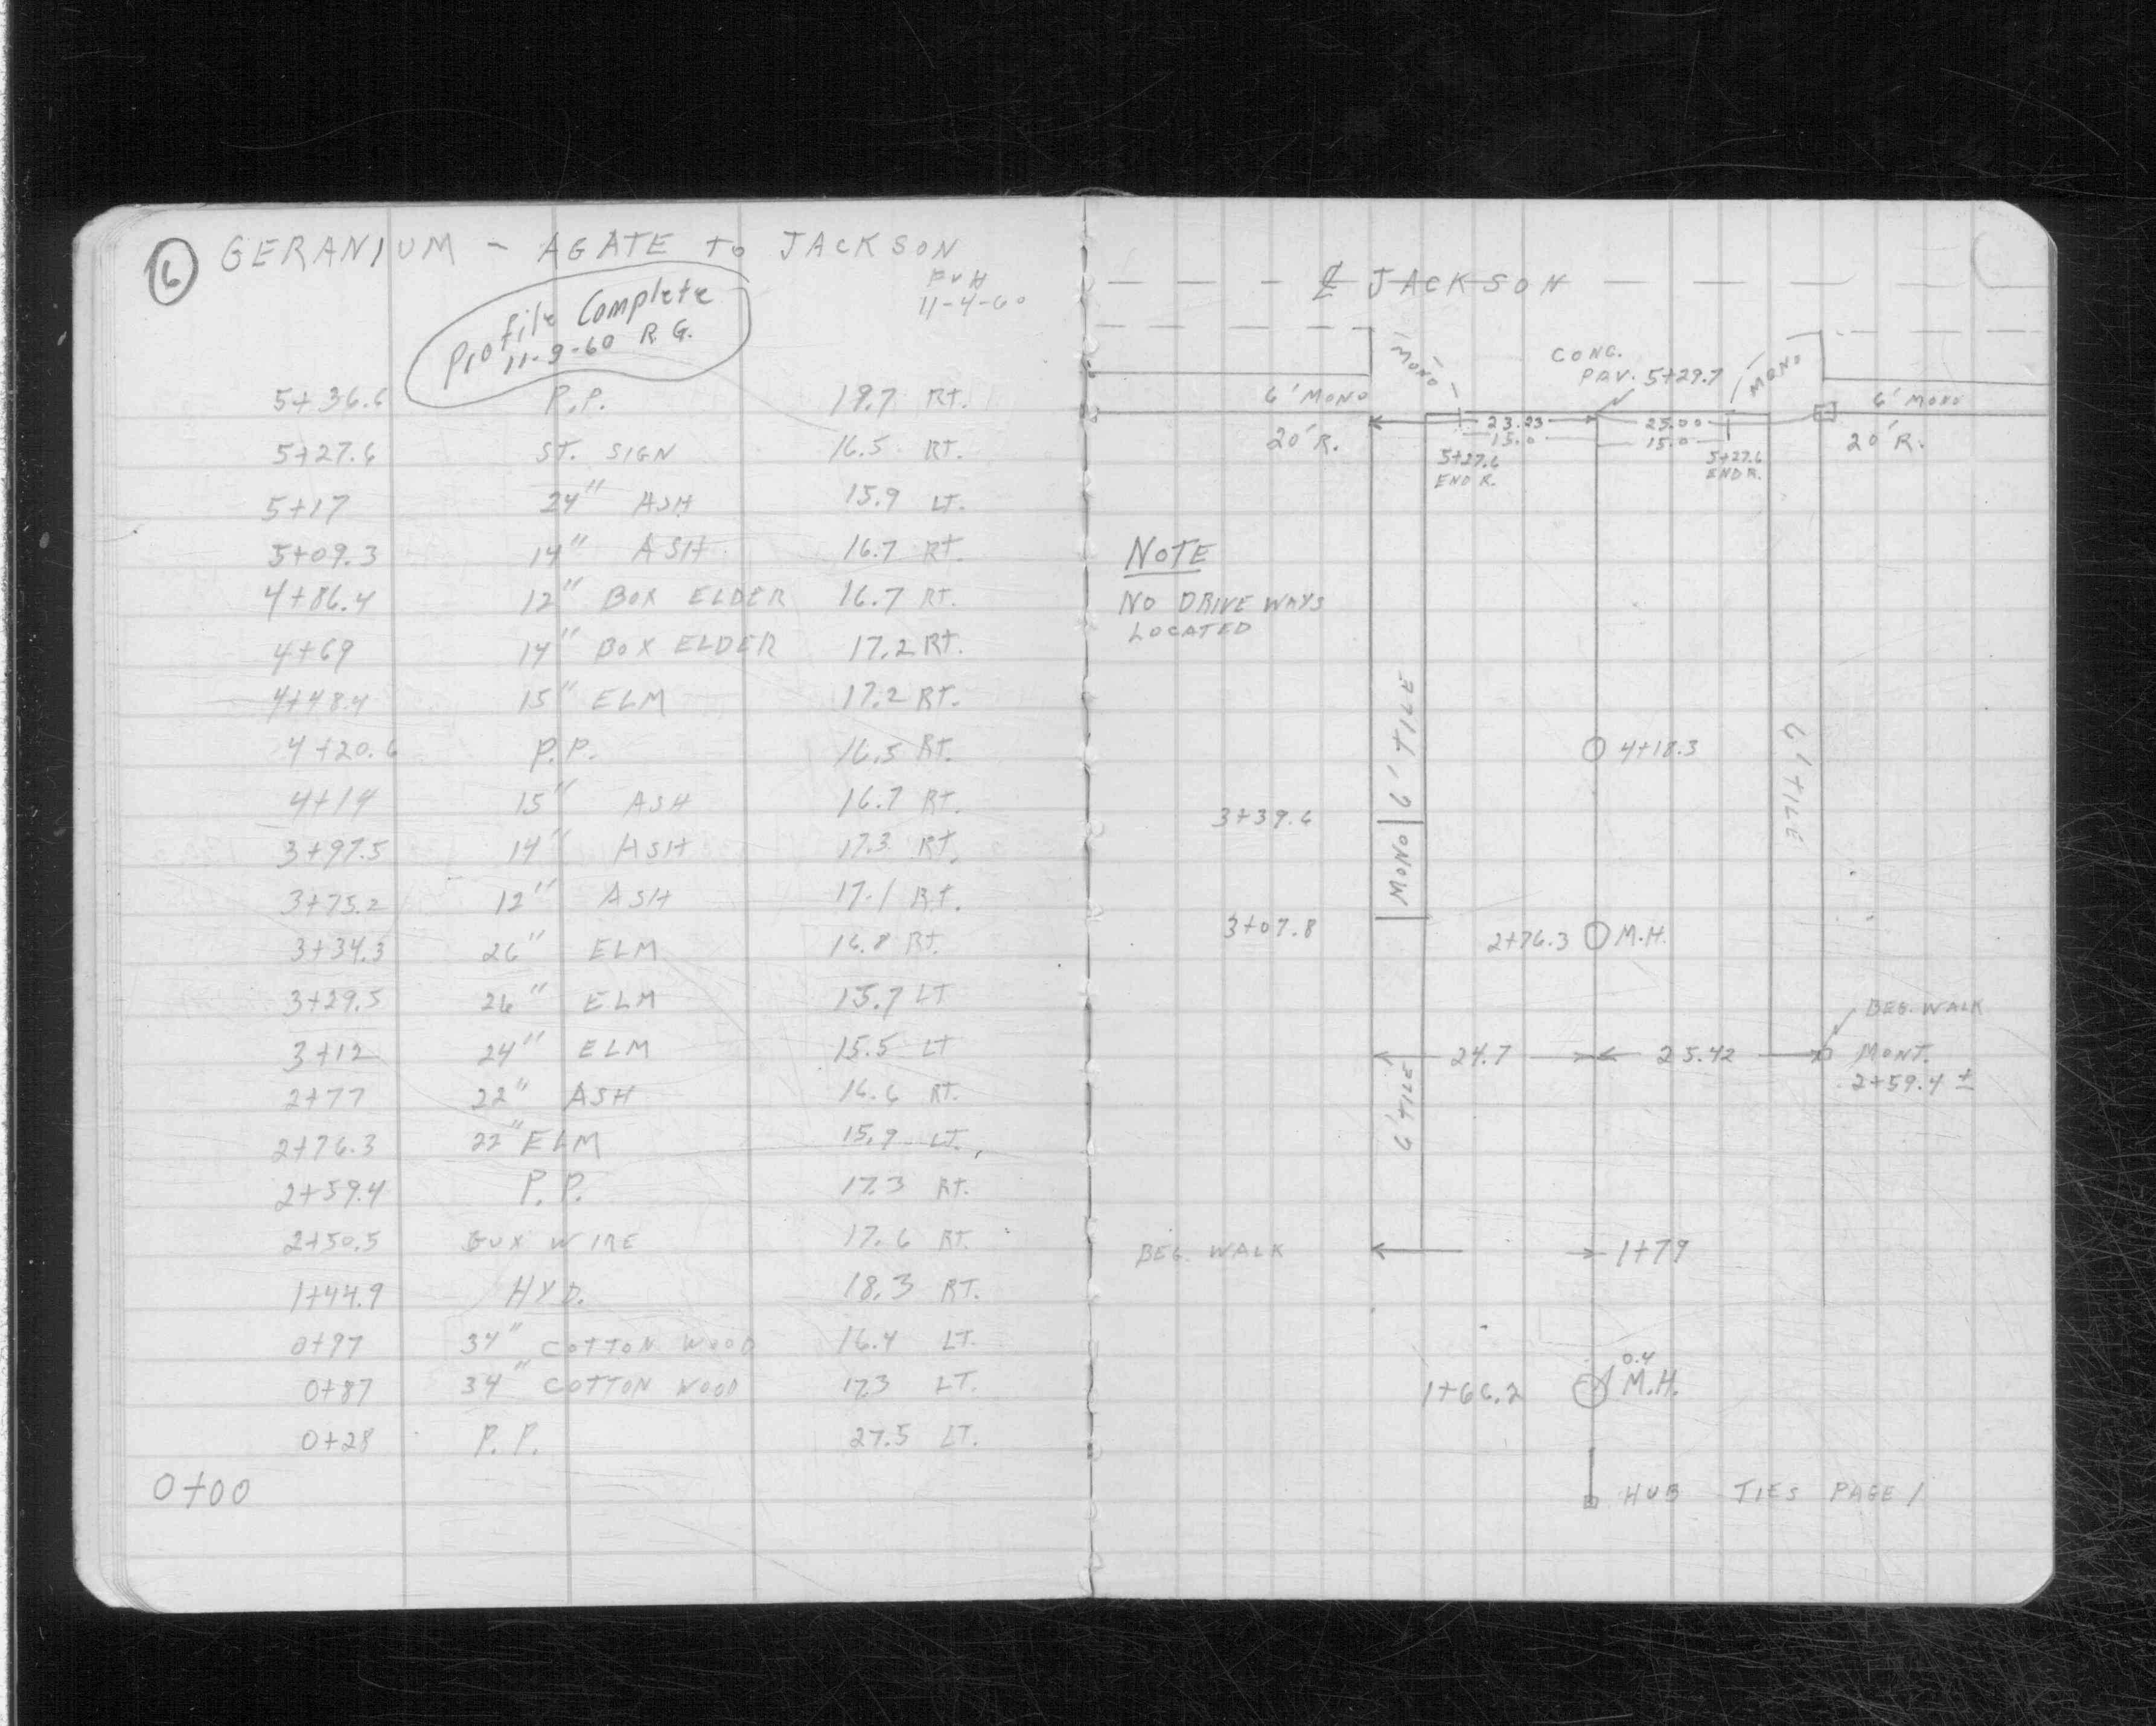 6 GERANIUM - AGATE to JACKSON
11-4-60
Profile Complete
11-9-60 R.G.
5+36.6 P.P. 19.7 RT.
5+27.6 ST. SIGN 16.5 RT.
5+17 24" ASH 15.9 LT.
5+09.3 14" ASH 16.7 RT.
4+86.4 12" BOX ELDER 16.7 RT.
4+69 14" BOX ELDER 17.2 RT.
4+48.4 15" ELM 17.2 RT.
4+20.6 P.P. 16.5 RT.
4+14 15" ASH 16.7 RT.
3+97.5 14" ASH 17.3 RT.
3+75.2 12" ASH 17.1 RT.
3+34.3 26" ELM 16.8 RT.
3+29.5 26" ELM 15.7 LT
3+12 24" ELM 15.5 LT
2+77 22" ASH 16.6 RT.
2+76.3 22" ELM 15.9 LT.
2+59.4 P.P. 17.3 RT.
2+50.5 GUY WIRE 17.6 RT.
1+44.9 HYD. 18.3 RT.
0+97 34" COTTON WOOD 16.4 LT.
0+87 34" COTTON WOOD 17.3 LT.
0+28 P.P. 27.5 LT.
0+00
℄ JACKSON
MONO
CONC.
PAV. 5+29.7
MONO
6' MONO
6' MONO
23.23 25.00
20' R. 15.0 15.0 20' R.
5+27.6 5+27.6
END R. END R.
NOTE
NO DRIVE WAYS
LOCATED
6' TILE
6' TILE
4+18.3
3+39.6
MONO
3+07.8
2+76.3 M.H.
BEG. WALK
24.7 25.42 MONT.
2+59.4 ±
6' TILE
BEG. WALK 1+79
0.4
1+66.2 M.H.
HUB TIES PAGE 1